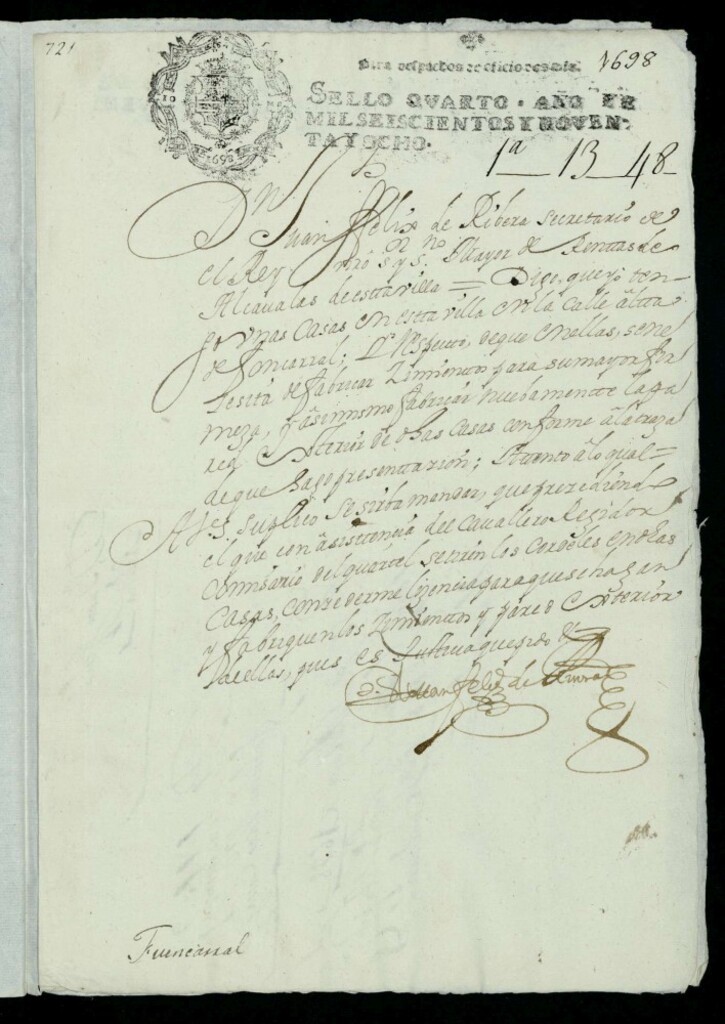 721
1698
Para despachos de oficio dos mrs.
SELLO QVARTO. AÑO DE
MIL SEISCIENTOS Y NOVEN-
TA Y OCHO.
1698
1ª 13 48
Dn Juan Felix de Ribera Secretario de
el Rey nro s. y s. no Mayor de Rentas de
Alcavalas de esta villa = Digo, que yo ten
go unas Casas en esta villa en la Calle alta
de foncarral; Y Respecto, de que en ellas, se ne
zesita de fabricar Zimientos para su mayor fir
meza, y asimismo fabricar nuebamente la pa
red exterior de dhas Casas conforme a la traza
de que hago presentazion; Y atento a lo qual =
A V.S. suplico se sirba mandar, que prezediend
el que con asistencia del Cavallero Regidor
Comisario del quartel se tiren los Cordeles en dhas
Casas, conzederme lizencia para que se hagan
y fabriquen los Zimientos y pared exterior
de ellas, pues es Justizia que pido &
D. Juan Felix de Rivera
Fuencarral